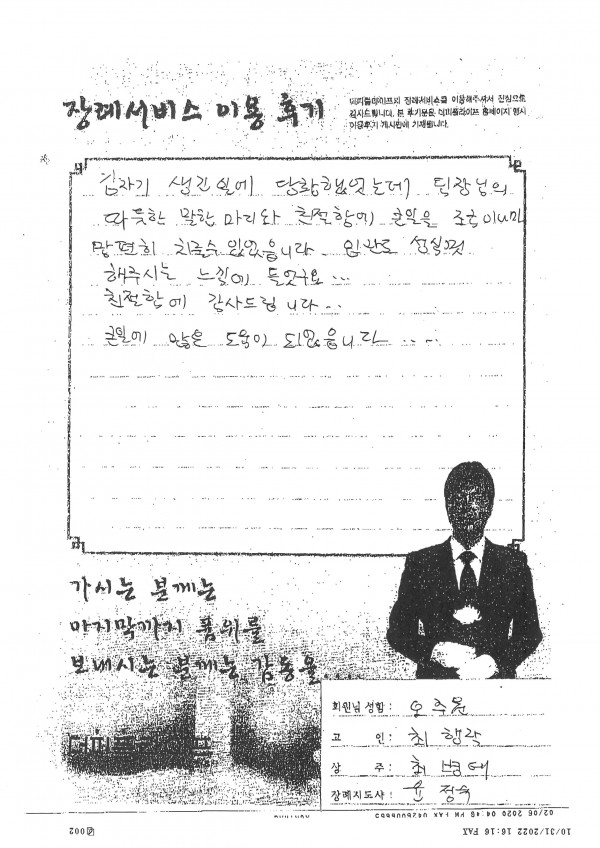 장례서비스 이용 후기
더피플라이프의 장례서비스를 이용해주셔서 진심으로
감사드립니다. 본 후기문은 더피플라이프 홈페이지 행사
이용후기 게시판에 기재됩니다.
갑자기 생긴일에 당황했었는데 팀장님의
따뜻한 말한 마리와 친절함에 큰일을 조금이나마
맘편히 치룰수 있었습니다
해주시는 느낌에 들었구요...
친절함에 감사드립니다...
큰일에 많은 도움이 되었습니다 ....
가시는 분께는
마지막까지 품위를
보내시는 분께는 감동을...
더피플라이프
회원님 성함 : 오주윤
고 인 : 최행락
상 주 : 최병태
장례지도사 : 윤정숙
02/06 2020 04:48 PM FAX
10/31/2022 16:16 FAX
002